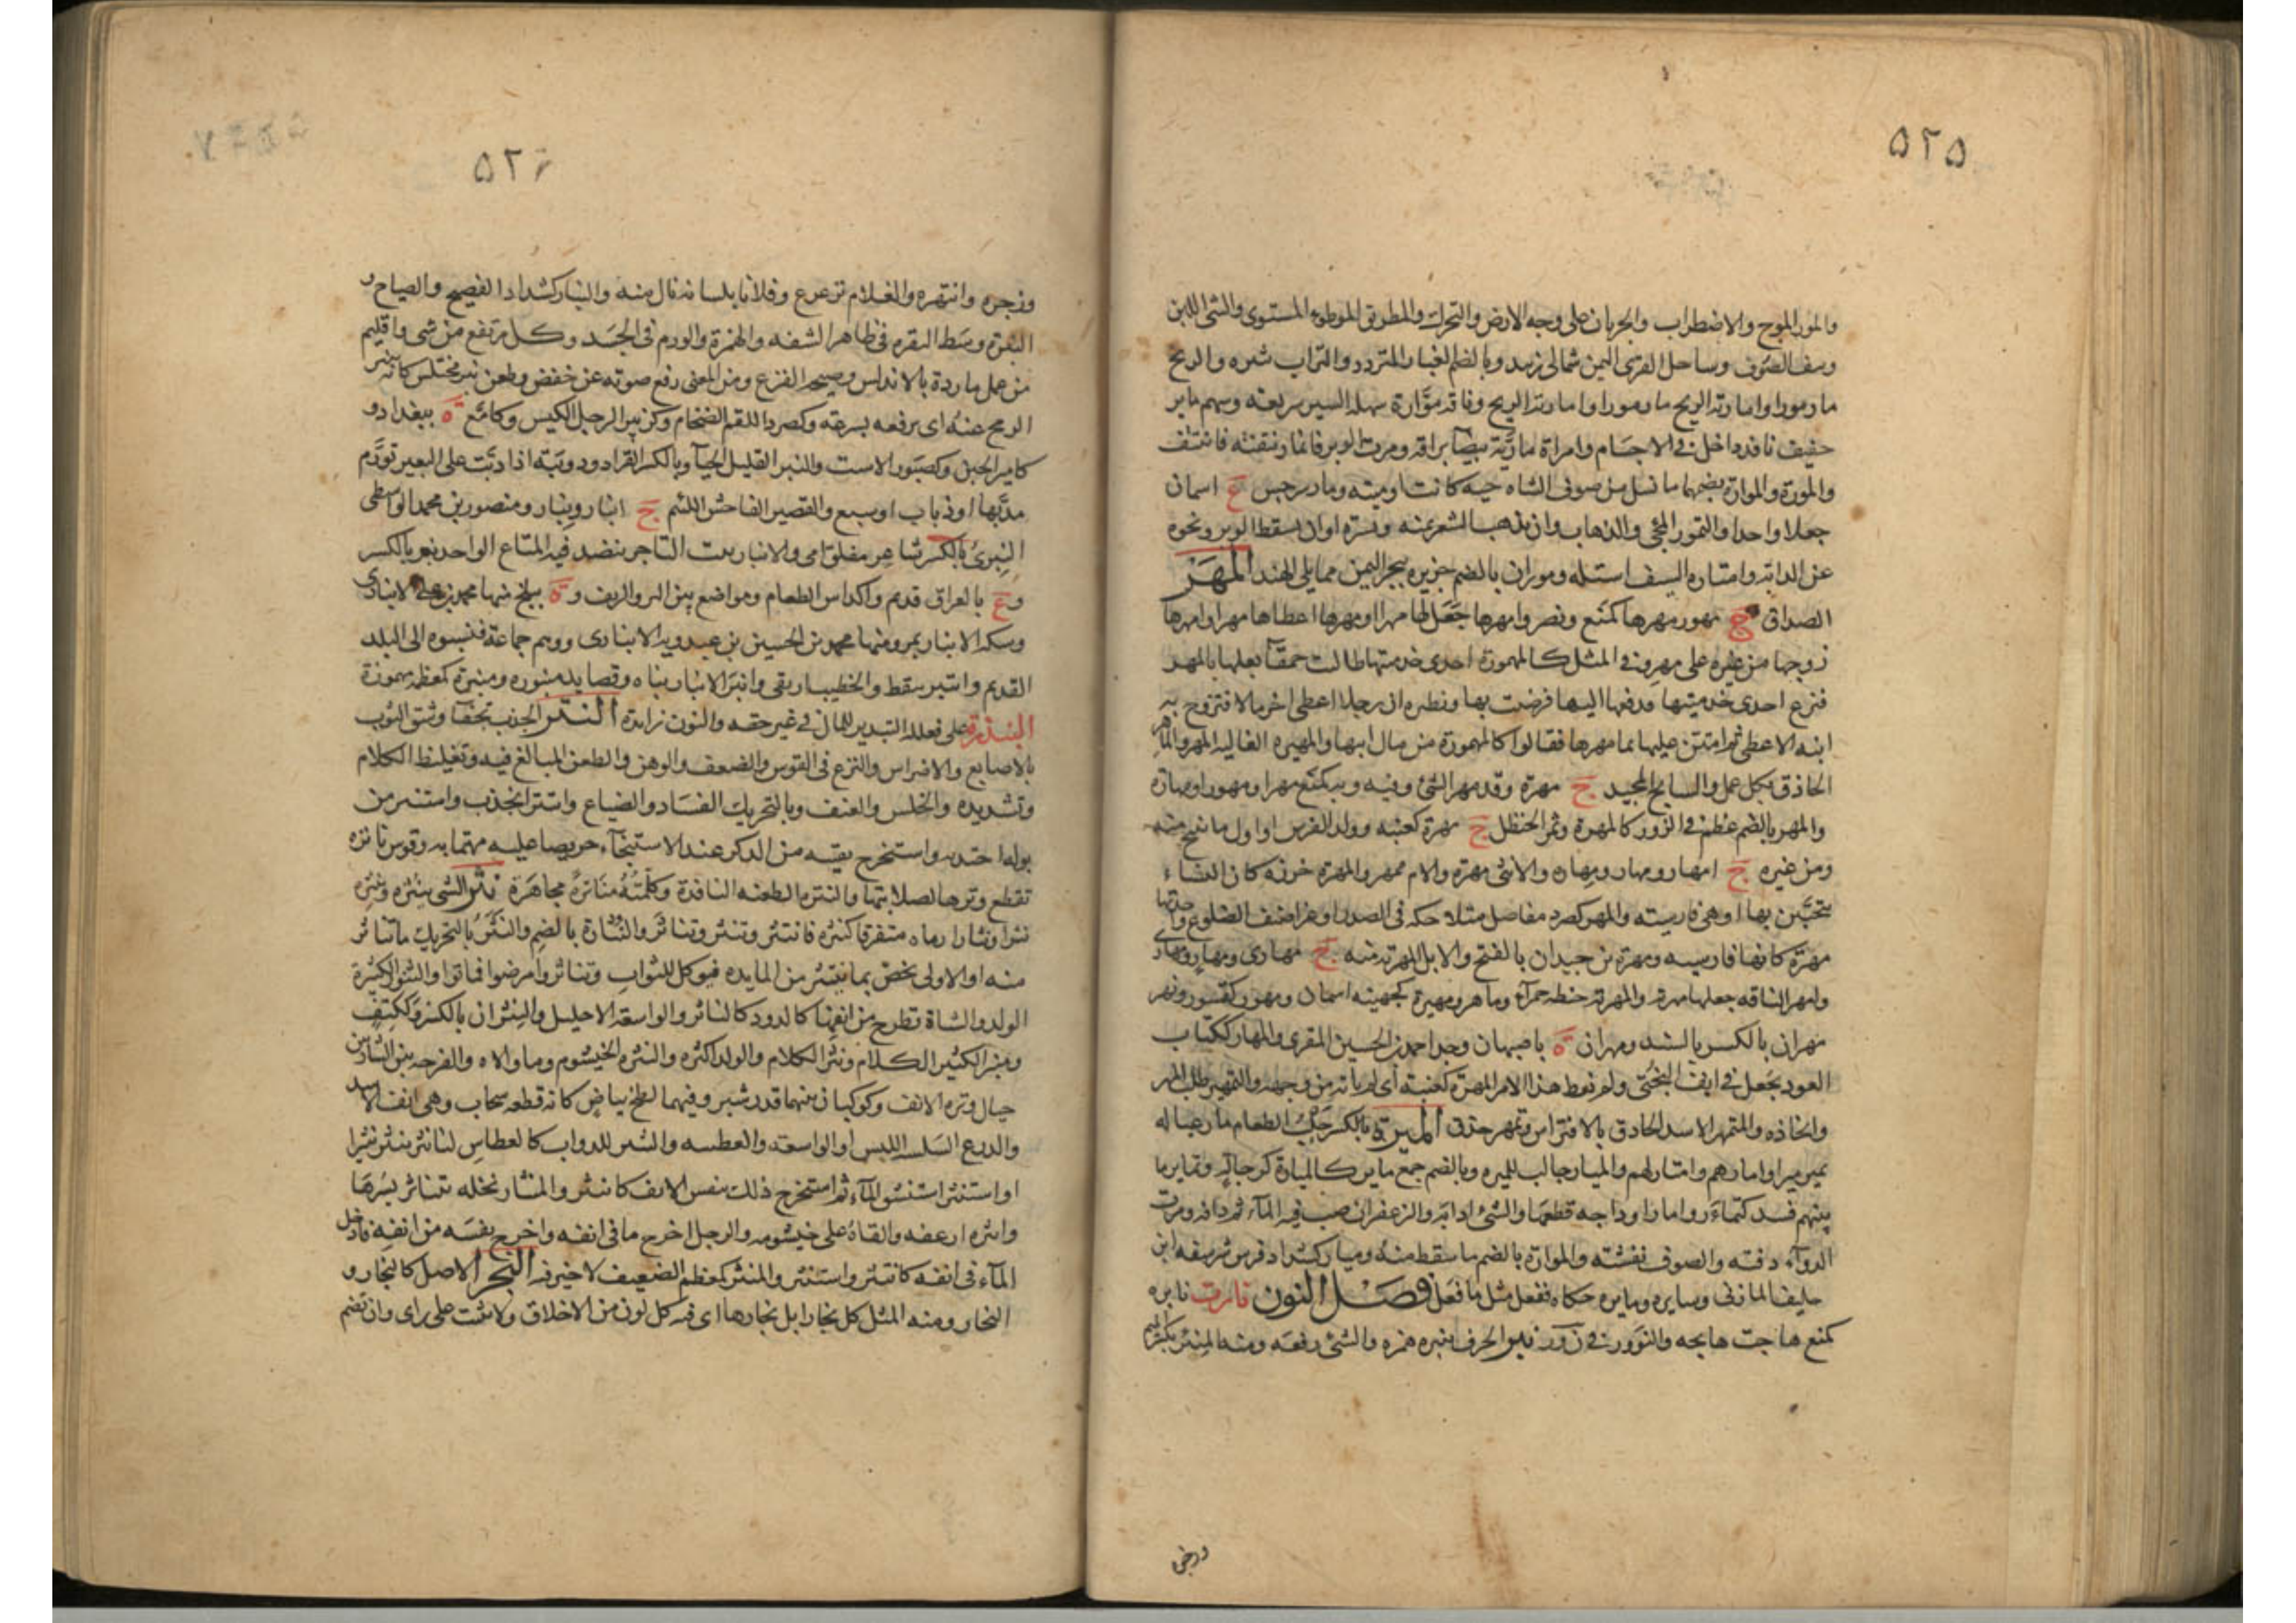 ٥٢٥
والمور الموج والاضطراب والجريان على وجه الارض والتحرك والطريق الموطوء المستوى والشى اللين
ونتف الصوف وساحل لقرى اليمن شمالى زبيد وبالضم الغبار المتردد والتراب تثيره الريح
مار مورا وامارته الريح مار مورا وامارته الريح وناقة موّارة سهلة السير سريعته وسهم ماير
خفيف نافذ داخل فى الاجسام وامراة ماريّة بيضا براقه ومرت الوبر فانمار نتفته فانتتف
والمورة والموارة بضمهما ما نسل من صوف الشاه حيه كانت او ميته ومار سرجس ع اسمان
جعلا واحدا والتمور المجئ والذهاب وان يذهب الشعر يمنه ويسرة او ان يسقط الوبر ونحوه
عن الدابة وامتاره السيف استله وموران بالضم جزيره ببحر اليمن ممايلى الهند المَهر
الصداق ج مهور مهرها كمنع ونصر وامهرها جعل لها مهرا او مهرها اعطاها مهرا وامهرها
زوجها من غيره على مهر وفى المثل كالممهورة احدى خدمتيها طالت حمقآ بعلها بالمهر
فنزع احدى خدمتيها ودفعها اليها فرضيت بها ونظيره ان رجلا اعطى اخر مالا فتزوج به
ابنه الاعطى ثم امتن عليها بما مهرها فقالوا كالممهورة من مال ابيها والمهيره الغاليه المهر والماهر
الحاذق بكل عمل والسابح المجيد ج مهرة وقد مهر الشئ وفيه وبه كمنع مهرا ومهورا ومهارة
والمهر بالضم عظم فى الزور كالمهرة وثمر الحنظل ج مهرة كعنبه وولد الفرس او اول ما ينتج منه
ومن غيره ج امهار ومهار ومهارة والانثى مهرة والام ممهر والمهرة خرزه كان النساء
يتحببن بها او هى فارسيته والمهر كصرد مفاصل متلاحكه فى الصدر او غراضيف الضلوع واحدتها
مهرة كانها فارسيه ومهرة بن حيدان بالفتح والابل المهرية منه ج مهارى ومهار ومهارى
وامهر الناقه جعلها مهرية والمهرية حنطه حمرآء وماهر ومهيرة كجهينه اسمان ومهور كقسور ونهر
مهران بالكسر بالسند ومهران ة باصبهان وجد احمد بن الحسين المقرى والمهار ككتاب
العود يجعل فى انف البختى ولم تعط هذا الامر المهرة كعنبة اى لم ياته من وجهه والتمهير طلب المهر
واتخاذه والمتمهر الاسد الحاذق بالافتراس وتمهر حذق الميرة بالكسر جلب الطعام مار عياله
يمير ميرا وامارهم وامتار لهم والميار جالب الميره وبالضم جمع ماير كالميارة كرجالة وتماير ما
بينهم فسد كتماءر وامار اوداجه قطعها والشئ اذابه والزعفران صب فيه المآء ثم دافه ومرت
الدوآء دفته والصوف نفشته والموارة بالضم ما سقط منه وميار كشداد فرس شرسفه ابن
حليف المازنى وسايره ومايره حكاه ففعل مثل ما فعل فصل النون نارت نايره
كمنع هاجت هايجه والنؤور فى ن و ر نبر الحرف ينبره همزه والشئ رفعه ومنه المنبر بكسر الميم
وزجى
٥٢٦
وزجره وانتهره والغلام ترعرع وفلانا بلسانه نال منه والنبار كشداد الفصيح والصياح و
النبرة وسط النقره فى ظاهر الشفه والهمزة والورم فى الجسد وكل مرتفع من شى واقليم
من عمل ماردة بالاندلس وصيحة الفزع ومن المغنى رفع صوته عن خفض وطعن نبر مختلس كانه ينبر
الرمح عنه اى يرفعه بسرعة وكصرد اللقم الضخام وكزبير الرجل الكيس وكامع ة ببغداد و
كامير الجبن وكصبور الاست والنبر القليل الحيآ وبالكسر القراد ودويبّة اذا دبّت على البعير تورّم
مدبّها او ذباب او سبع والقصير الفاحش اللئيم ج انبار ونبار ومنصور بن محمد الواسطى
النِبرى بالكسر شاعر مفلق امى والانبار بيت التاجر ينضد فيه المتاع الواحد نبر بالكسر
وع بالعراق قديم واكداس الطعام ومواضع بين البر والريف و ة ببلخ منها محمد بن على الانبارى
وسكة الانبار بمرو منها محمد بن الحسين بن عبدويه الانبارى ووهم جماعة فنسبوه الى البلد
القديم وانتبر سقط والخطيب ارتقى وانبر الانبار بناه وقصايد منبوره ومنبرة كمعظمه مهموزة
النبذرة على فعلله التبذير للمال فى غير حقه والنون زايدة النتر الجذب بجفآ وشق الثوب
بالاصابع والاضراس والنزع فى القوس والضعف والوهن والطعن المبالغ فيه وتغليظ الكلام
وتشديده والخلس والعنف وبالتحريك الفساد والضياع وانتتر انجذب واستنتر من
بوله اجتذبه واستخرج بقيته من الذكر عند الاستنجآء حريصا عليه مهتما به وقوس ناتره
تقطع وترها لصلابتها والنتره الطعنه النافذة وكلمته مناترة مجاهرة نثر الشى ينثره وينثره
نثرا ونثارا رماه متفرقا كنثره فانتثر وتنثر وتناثر والنُثارة بالضم والنثر بالتحريك ما تناثر
منه او الاولى تخص بما ينتثر من المايده فيوكل للثواب وتناثروا مرضوا فماتوا والنثور الكثيرة
الولد والشاة تطرح من انفها كالدود كالناثر والواسعة الاحليل والنِيثران بالكسر وككتف
ومنبر الكثير الكلام ونثر الكلام والولد اكثره والنثره الخيشوم وما والاه والفرجه بين الشاربين
حيال وترة الانف وكوكبان بينهما قدر شبر وفيهما لطخ بياض كانه قطعه سحاب وهى انف الاسد
والدرع السلسه الملبس او الواسعه والعطسه والنثير للدواب كالعطاس لنا نثر ينثر نثيرا
او استنثر استنشق المآء ثم استخرج ذلك بنفس الانف كانتثر والمنثار نخله يتناثر بسرها
وانثره ارعفه والقاه على خيشومه والرجل اخرج ما فى انفه واخرج نفسه من انفه وادخل
المآء فى انفه كانتثر واستنثر والمنثر كمعظم الضعيف لا خير فيه النجر الاصل كالنِجار و
النجار ومنه المثل كل نجار ابل نجارها اى فيه كل لون من الاخلاق ولا يثبت على راى وان تضم